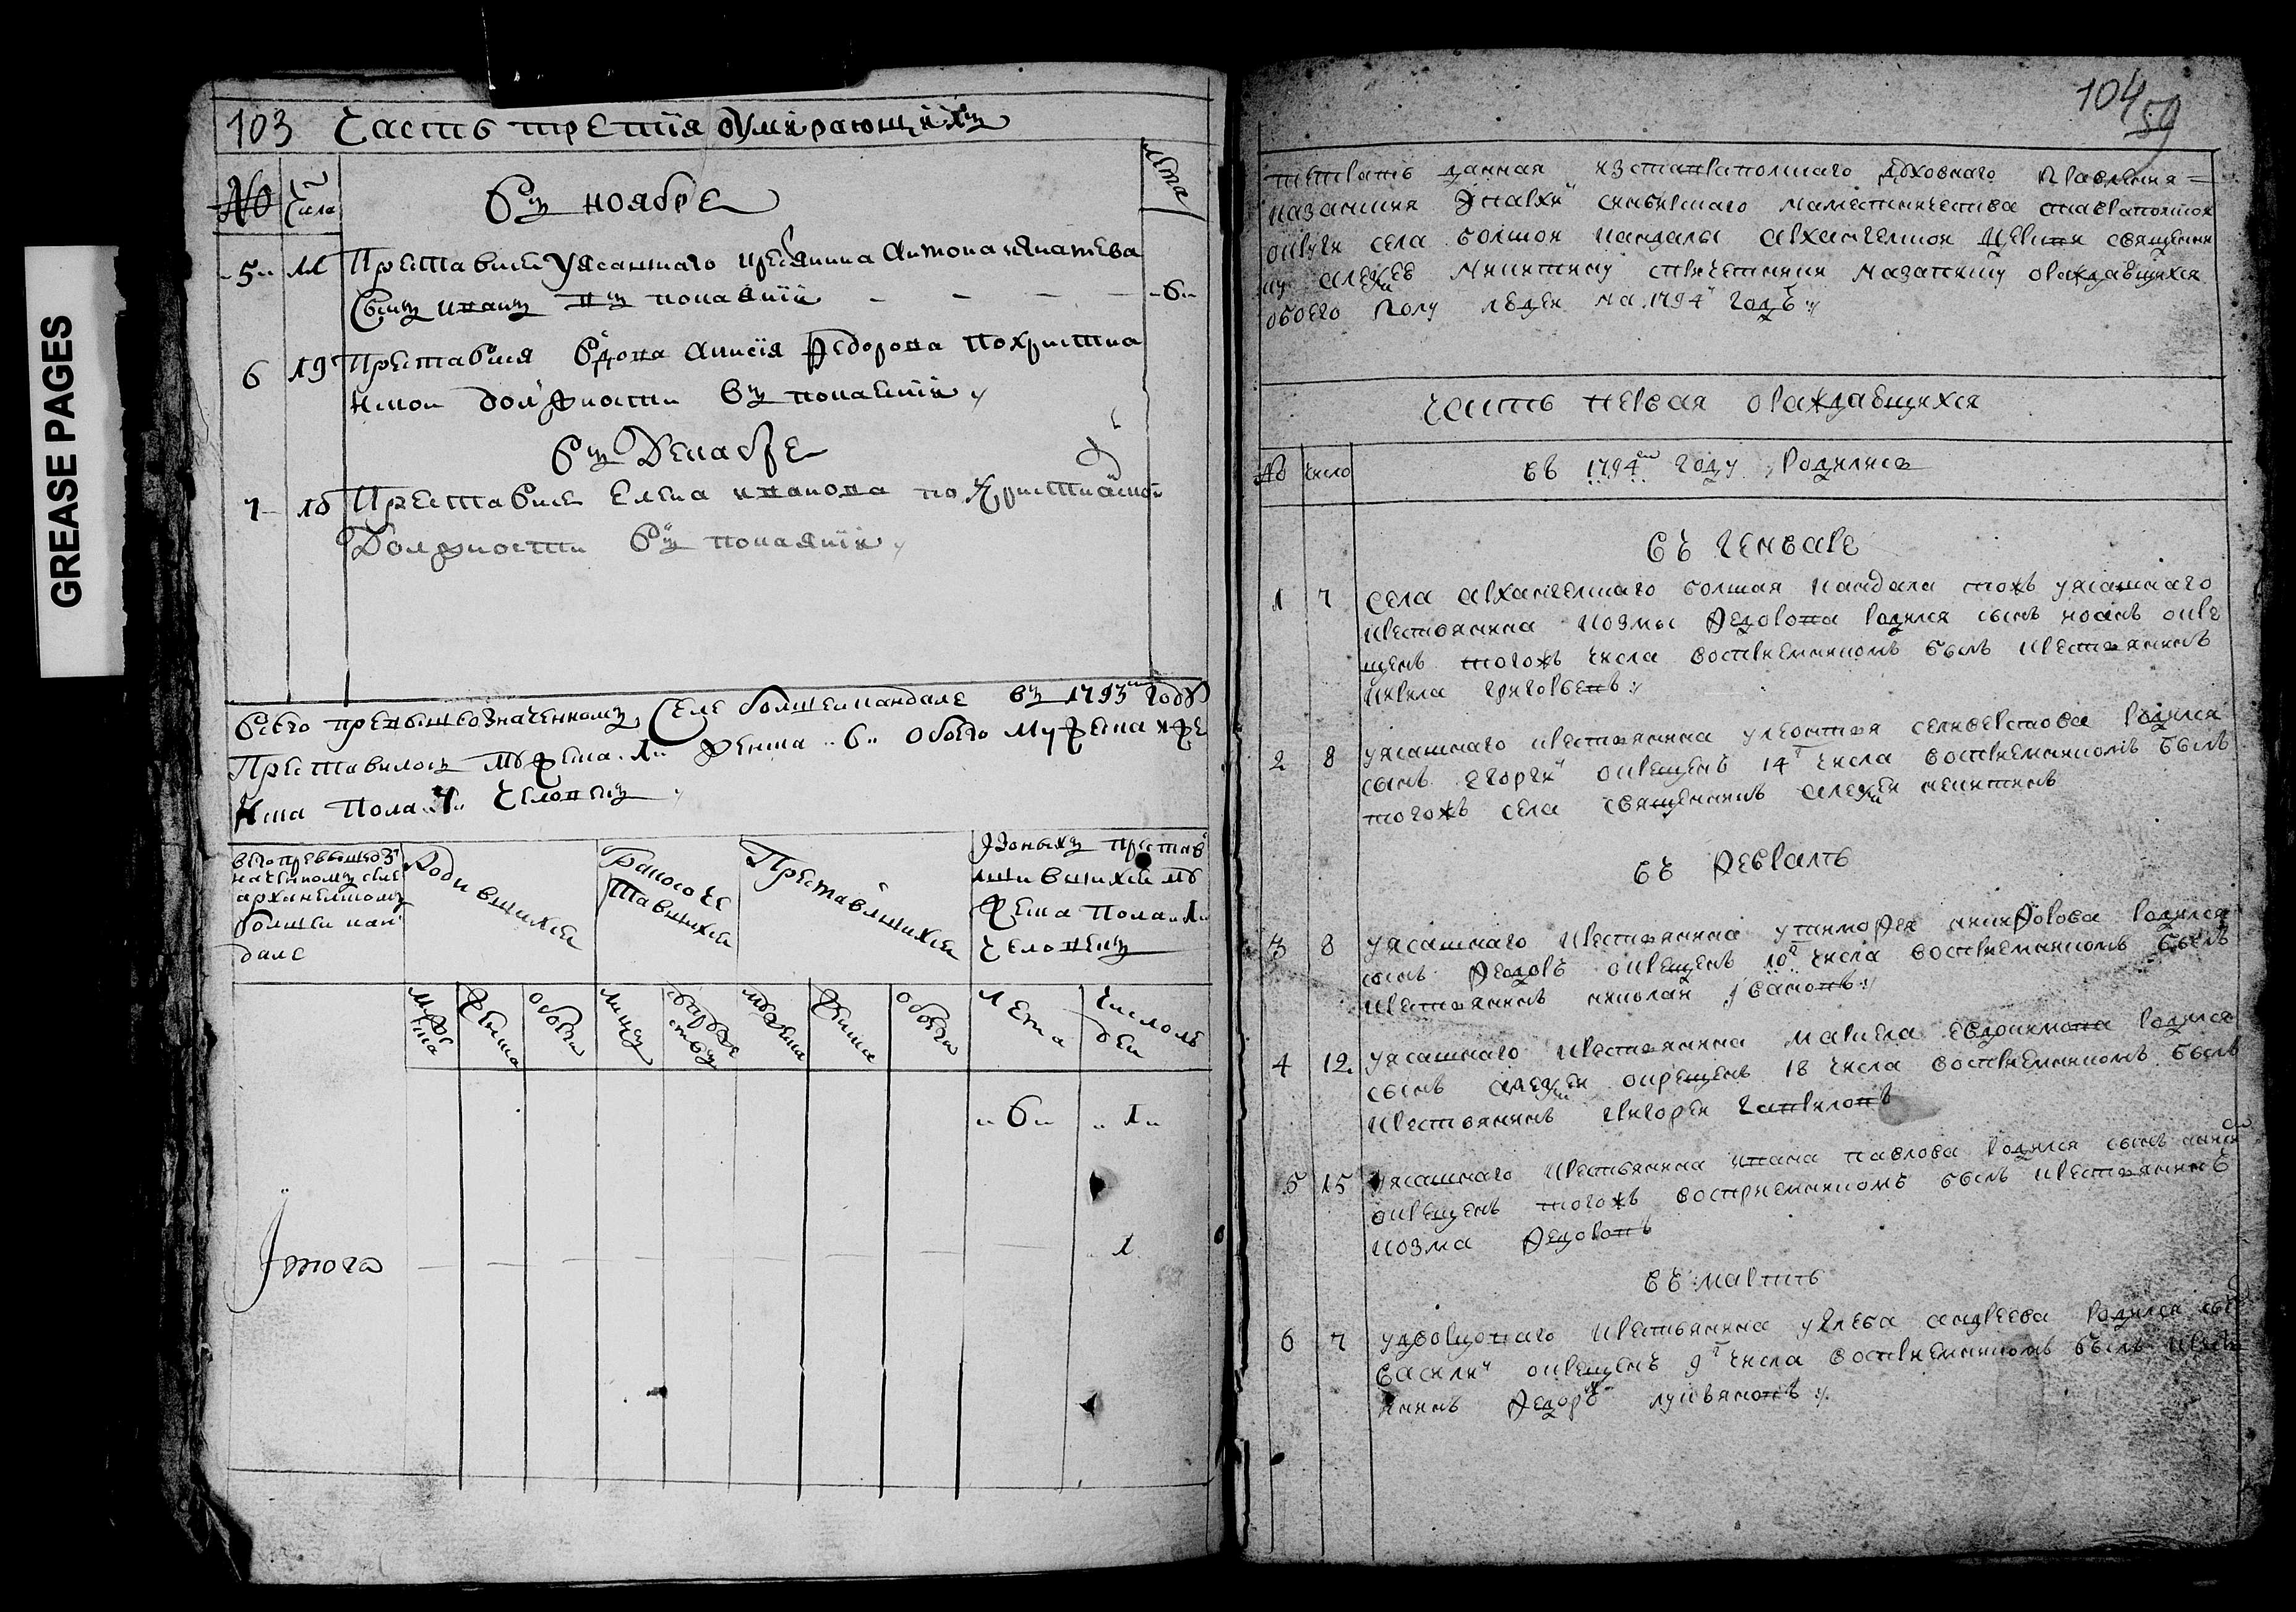 GREASE PAGES
103 Часть третїя оумирающихъ
№ Числа Въ ноябре лѣта
5 11 Преставися Уясашнаго крестьянина Антона Игнатева
Сынъ иванъ въ покаянїи 6
6 19 Преставися вдова Анисїя Федорова по христиа
нской должности въ покаянїи
Въ Декабре
7 16 Преставися Елена иванова по Христианской
Должности въ покаянїи
Всего превышеозначенномъ Селе болшей кандале въ 1793м году
Преставилось мужеска 1 женска 6 обоего мужеска и же
нска Пола 7 человекъ
Всего превышеоз
наченномъ селе
архангелскомъ
болшей кан
дале
Родившихся
Бракосоче
тавшихся
Преставлшихся
Изоныхъ престав
лшившихся му
жеска Пола 1
человекъ
мужеска женска обоего лицъ мужеска женска обоего лета числомъ
6 1
Итого 1
104
59
тетрать данная изставрополскаго духовнаго правления
казанския Эпархии симбирскаго наместничества ставрополской
округи села болшой кандалы архангелской церкви священни
ку алексею никитину спричетники назаписку ораждавшихся
обоего полу людей на 1794й годъ
часть первая ораждавщихся
№ число въ 1794м году родились
въ генваре
1 7 села архангелскаго болшая кандала тожъ уясашнаго
крестьянина козмы Федорова родился сынъ иоанъ окре
щенъ тогожъ числа восприемникомъ былъ крестьянинъ
кирила григорьевъ
2 8 уясашнаго крестьянина улеонтия селиверстова родился
сынъ егорги окрещенъ 14г числа восприемникомъ былъ
тогожъ села священникъ алексеи никитинъ
въ Феврале
3 8 уясашнаго крестьянина утимофея никифорова родился
сынъ Федоръ окрещенъ 10г числа восприемникомъ былъ
крестьянинъ николаи Ивановъ
4 12 уясашнаго крестьянина маркела евдокимова родился
сынъ алексеи окрещенъ 18 числа восприемникомъ былъ
крестьянинъ григореи гавриловъ
5 15 уясашнаго крестьянина ивана павлова родился сынъ
окрещенъ тогожъ восприемникомъ былъ крестьянинъ
козма Федоровъ
въ мартѣ
6 7 удворцоваго крестьянина углеба андреева родился сынъ
василии окрещенъ 9г числа восприемникомъ былъ крестья
нинъ Федоръ лукьяновъ